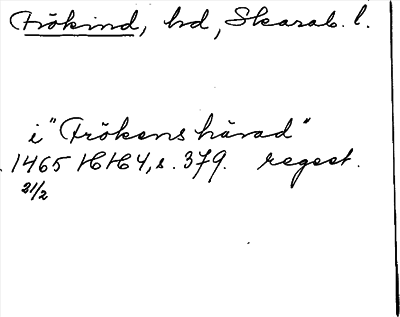 Frökind, hd, Skarab. l.
i "Frökens härad"
1465 HH 4, s. 379. regest.
21/2